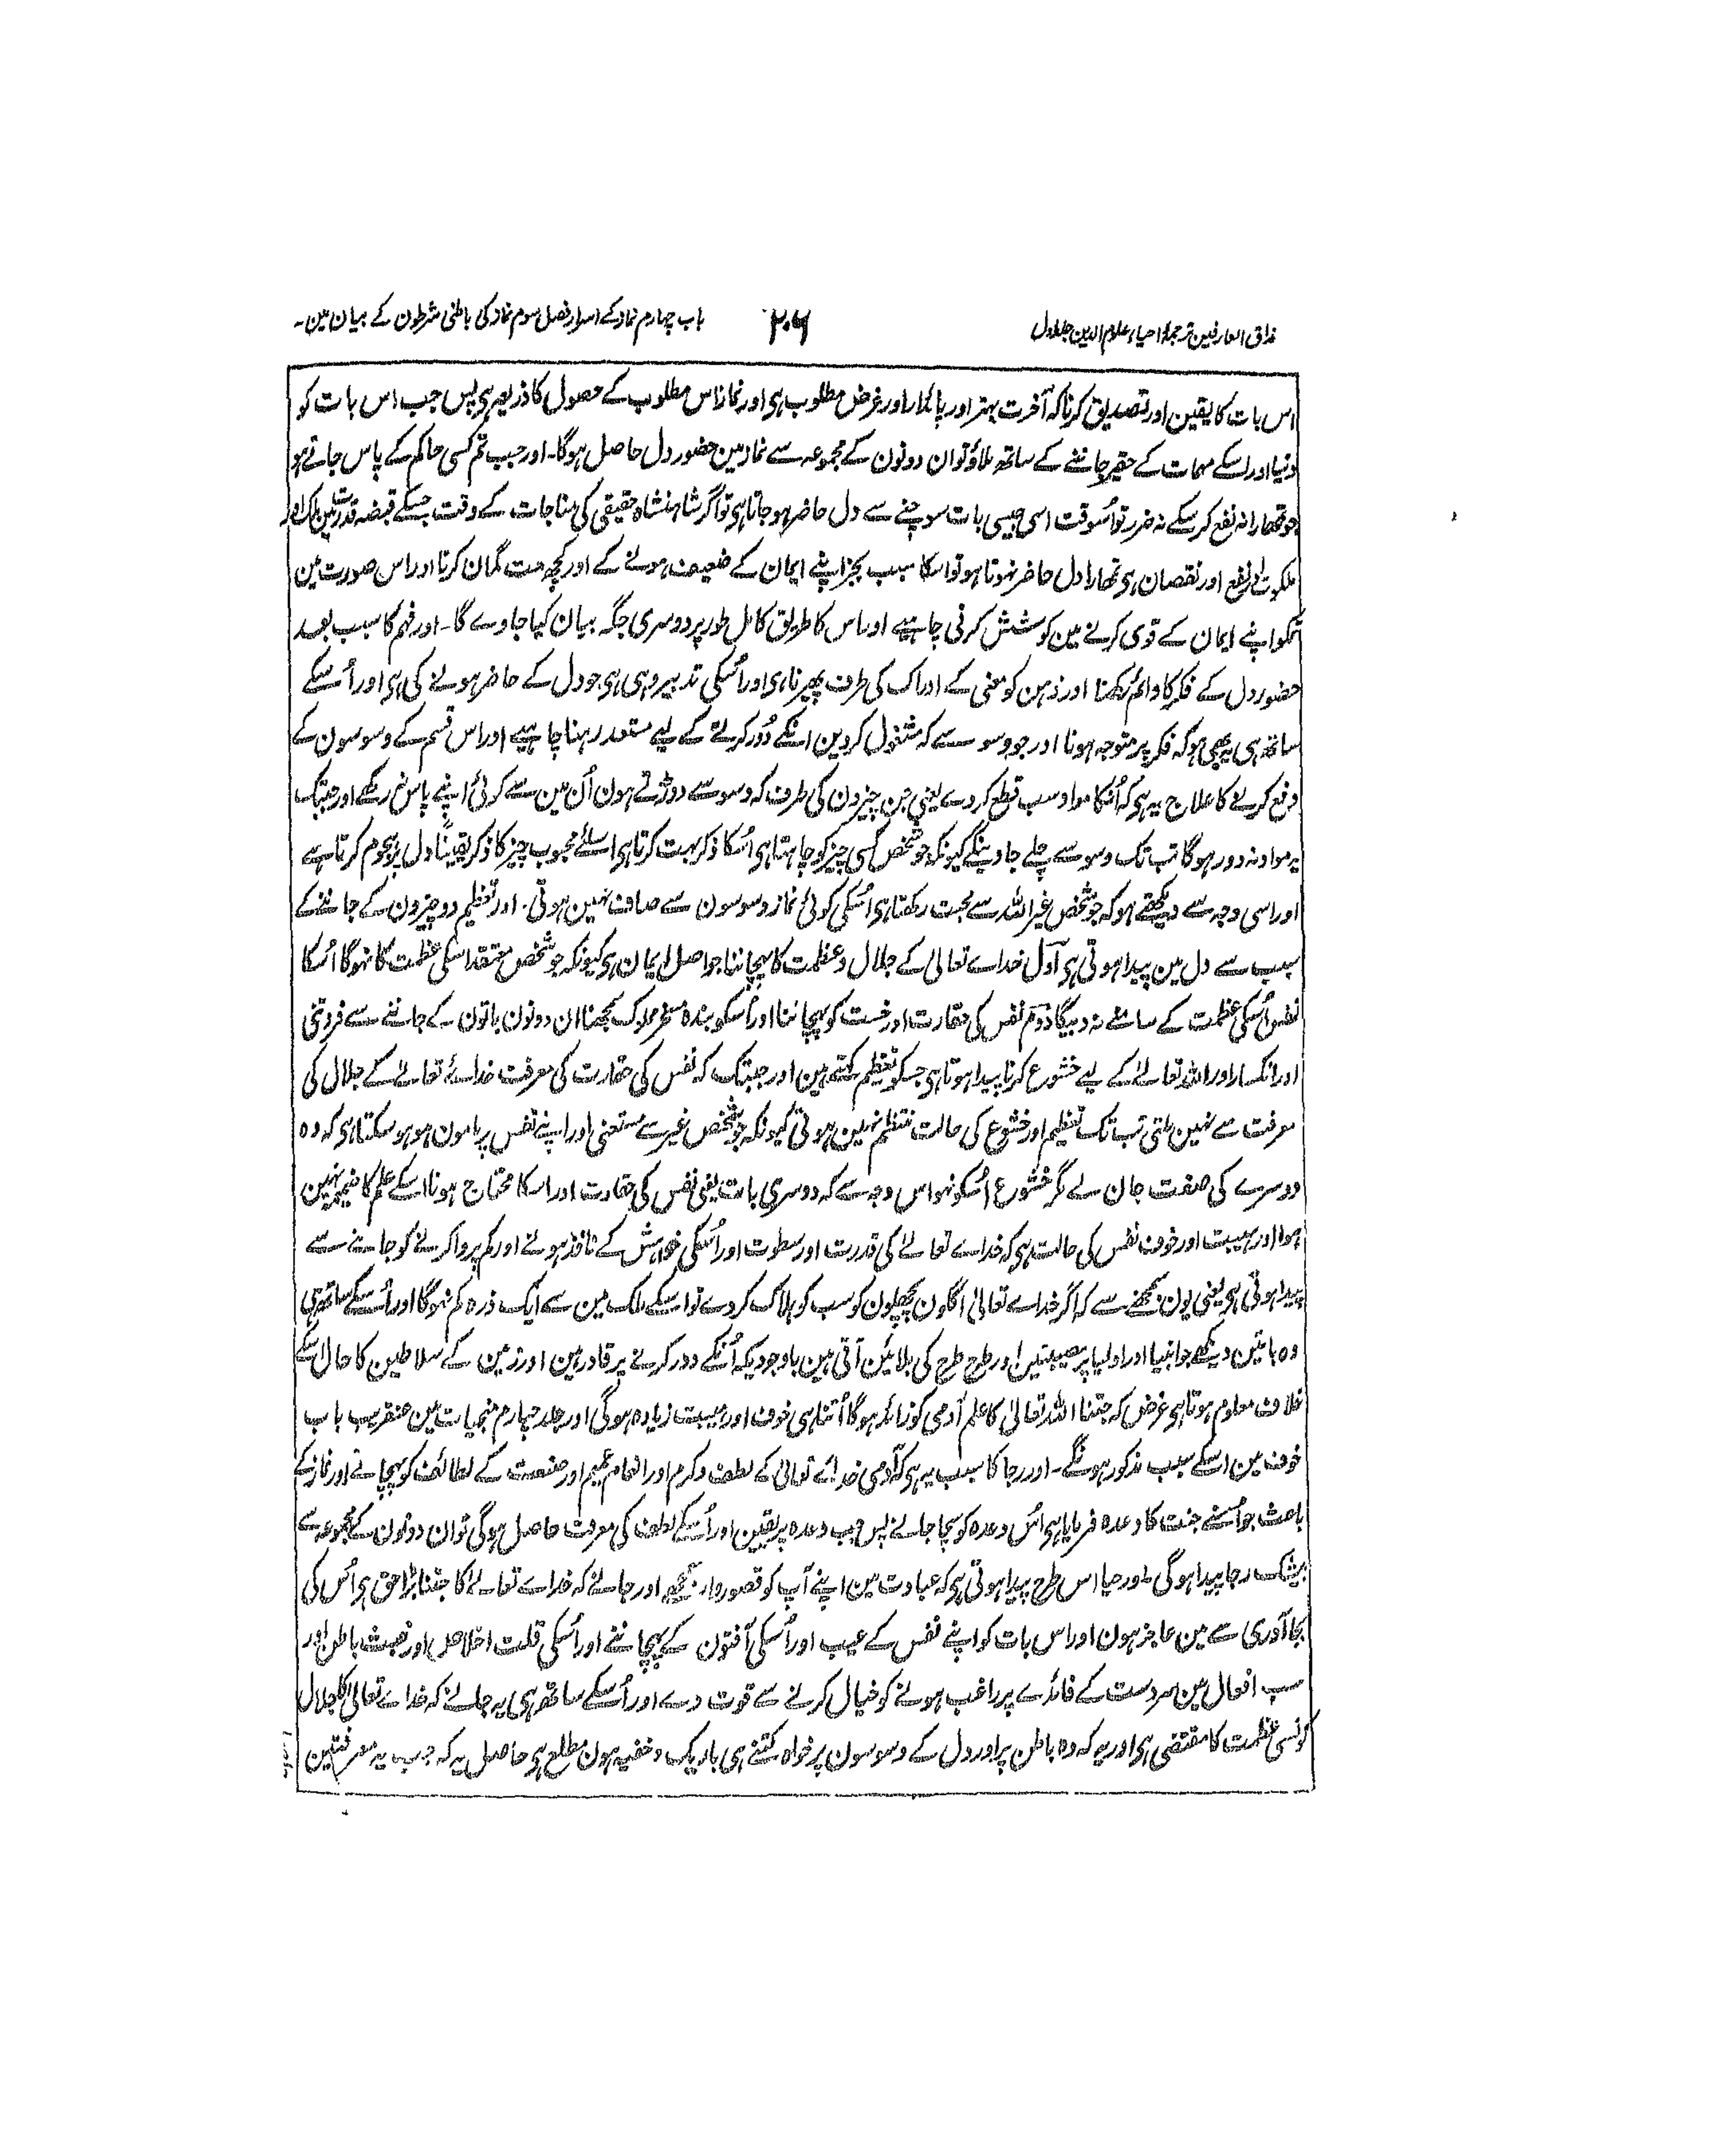 مذاق العارفین ترجمۂ احیاء علوم الدین جلد اول
۲۰۶
باب چہارم نماز کے اسرار فصل سوم نماز کی باطنی شرطون کے بیان مین۔
اس بات کا یقین اور تصدیق کرنا کہ آخرت بہتر اور پائدار اور غرض مطلوب ہی اور نماز اس مطلوب کے حصول کا ذریعہ ہی پس جب اس بات کو
دنیا اور اسکے مہمات کے حقیر جاننے کے ساتھ ملاؤ تو ان دونون کے مجموعہ سے نماز مین حضور دل حاصل ہوگا۔ اور جب تم کسی حاکم کے پاس جاتے ہو
جو تمھارا نہ نفع کر سکے نہ ضرر تو اُسوقت اسی جیسی بات سوچنے سے دل حاضر ہو جاتا ہی تو اگر شاہنشاہ حقیقی کی مناجات کے وقت جسکے قبضہ قدرت مین ملک اور
ملکوت اور نفع اور نقصان ہی تمھارا دل حاضر نہوتا ہو تو اسکا سبب بجز اپنے ایمان کے ضعیف ہونے کے اور کچھ مت گمان کرنا اور اس صورت مین
تمکو اپنے ایمان کے قوی کرنے مین کوشش کرنی چاہیے اور اس کا طریق کامل طور پر دوسری جگہ بیان کیا جاوے گا۔ اور فہم کا سبب بعد
حضور دل کے فکر کا دائم رکھنا اور ذہن کو معنی کے ادراک کی طرف پھیرنا ہی اور اُسکی تدبیر وہی ہی جو دل کے حاضر ہونے کی ہی اور اُسکے
ساتھ ہی یہ بھی ہو کہ فکر پر متوجہ ہونا اور جو وسوسے کہ مشغول کردین انکے دُور کرنے کے لیے مستعد رہنا چاہیے اور اس قسم کے وسوسون کے
دفع کرنے کا علاج یہ ہی کہ اُنکا مواد سب قطع کردے یعنی جن چیزون کی طرف کہ وسوسے دوڑتے ہون اُن مین سے کوئی اپنے پاس نہ رکھے اور جبتک
یہ مواد نہ دور ہوگا تب تک وسوسے چلے جاوینگے کیونکہ جو شخص کسی چیز کو چاہتا ہی اُسکا ذکر بہت کرتا ہی اسلئے محبوب چیز کا ذکر یقیناً دل پر ہجوم کرتا ہے
اور اسی وجہ سے دیکھتے ہو کہ جو شخص غیر اللہ سے محبت رکھتا ہی اُسکی کوئی نماز وسوسون سے صاف نہین ہوتی۔ اور تعظیم دو چیزون کے جاننے کے
سبب سے دل مین پیدا ہوتی ہی اوّل خداے تعالیٰ کے جلال و عظمت کا پہچاننا جو اصل ایمان ہی کیونکہ جو شخص معتقد اسکی عظمت کا نہوگا اُسکا
نفس اُسکی عظمت کے سامنے نہ دبیگا دوم نفس کی حقارت اور خست کو پہچاننا اور اُسکو بندہ مسخر مملوک سمجھنا ان دونون باتون کے جاننے سے فروتنی
اور انکسار اور اللہ تعالےٰ کے لیے خشوع کرنا پیدا ہوتا ہی جسکو تعظیم کہتے ہین اور جبتک کہ نفس کی حقارت کی معرفت خدائے تعالےٰ کے جلال کی
معرفت سے نہین ملتی تب تک تعظیم اور خشوع کی حالت منتظم نہین ہوتی کیونکہ جو شخص غیر سے مستغنی اور اپنے نفس پر مامون ہو ہو سکتا ہی کہ وہ
دوسرے کی صفت جان لے مگر خشوع اُسکو نہو اس وجہ سے کہ دوسری بات یعنی نفس کی حقارت اور اسکا محتاج ہونا اسکے علم کا ضمیمہ نہین
ہوا اور ہیبت اور خوف نفس کی حالت ہی کہ خداے تعالےٰ کی قدرت اور سطوت اور اُسکی خواہش کے نافذ ہونے اور کم پروا کرنے کو جاننے سے
پیدا ہوتی ہی یعنی یون سمجھنے سے کہ اگر خداے تعالیٰ اگلون پچھلون کو سب کو ہلاک کردے تو اسکے ملک مین سے ایک ذرہ کم نہوگا اور اُسکے ساتھ ہی
وہ باتین دیکھے جو انبیا اور اولیا پر مصیبتین اور طرح طرح کی بلائین آتی ہین باوجودیکہ اُنکے دور کرنے پر قادر ہین اور زمین کے سلاطین کا حال اسکے
خلاف معلوم ہوتا ہی غرض کہ جتنا اللہ تعالیٰ کا علم آدمی کو زائد ہوگا اُتنا ہی خوف اور ہیبت زیادہ ہوگی اور جلد چہارم منجیات مین عنقریب باب
خوف مین اسکے سبب مذکور ہونگے۔ اور رجا کا سبب یہ ہی کہ آدمی خداے تعالیٰ کے لطف و کرم اور انعام عمیم اور صنعت کے لطائف کو پہچانے اور نماز کے
باعث جو اُسنے جنت کا وعدہ فرمایا ہی اُس وعدہ کو سچا جانے پس جب وعدہ پر یقین اور اُسکے لطف کی معرفت حاصل ہوگی تو ان دونون کے مجموعہ سے
بیشک رجا پیدا ہوگی۔ اور حیا اس طرح پیدا ہوتی ہی کہ عبادت مین اپنے آپ کو قصوروار سمجھے اور جانے کہ خداے تعالےٰ کا جتنا بڑا حق ہی اُس کی
بجا آوری سے مین عاجز ہون اور اس بات کو اپنے نفس کے عیب اور اُسکی آفتون کے پہچاننے اور اُسکی قلت اخلاص اور خبث باطن اور
سب افعال مین سردست کے فائدے پر راغب ہونے کو خیال کرنے سے قوت دے اور اُسکے ساتھ ہی یہ جانے کہ خداے تعالیٰ کا جلال
کونسی عظمت کا مقتضی ہی اور یہ کہ وہ باطن پر اور دل کے وسوسون پر خواہ کتنے ہی باریک و خفیہ ہون مطلع ہی حاصل یہ کہ جب یہ معرفتین